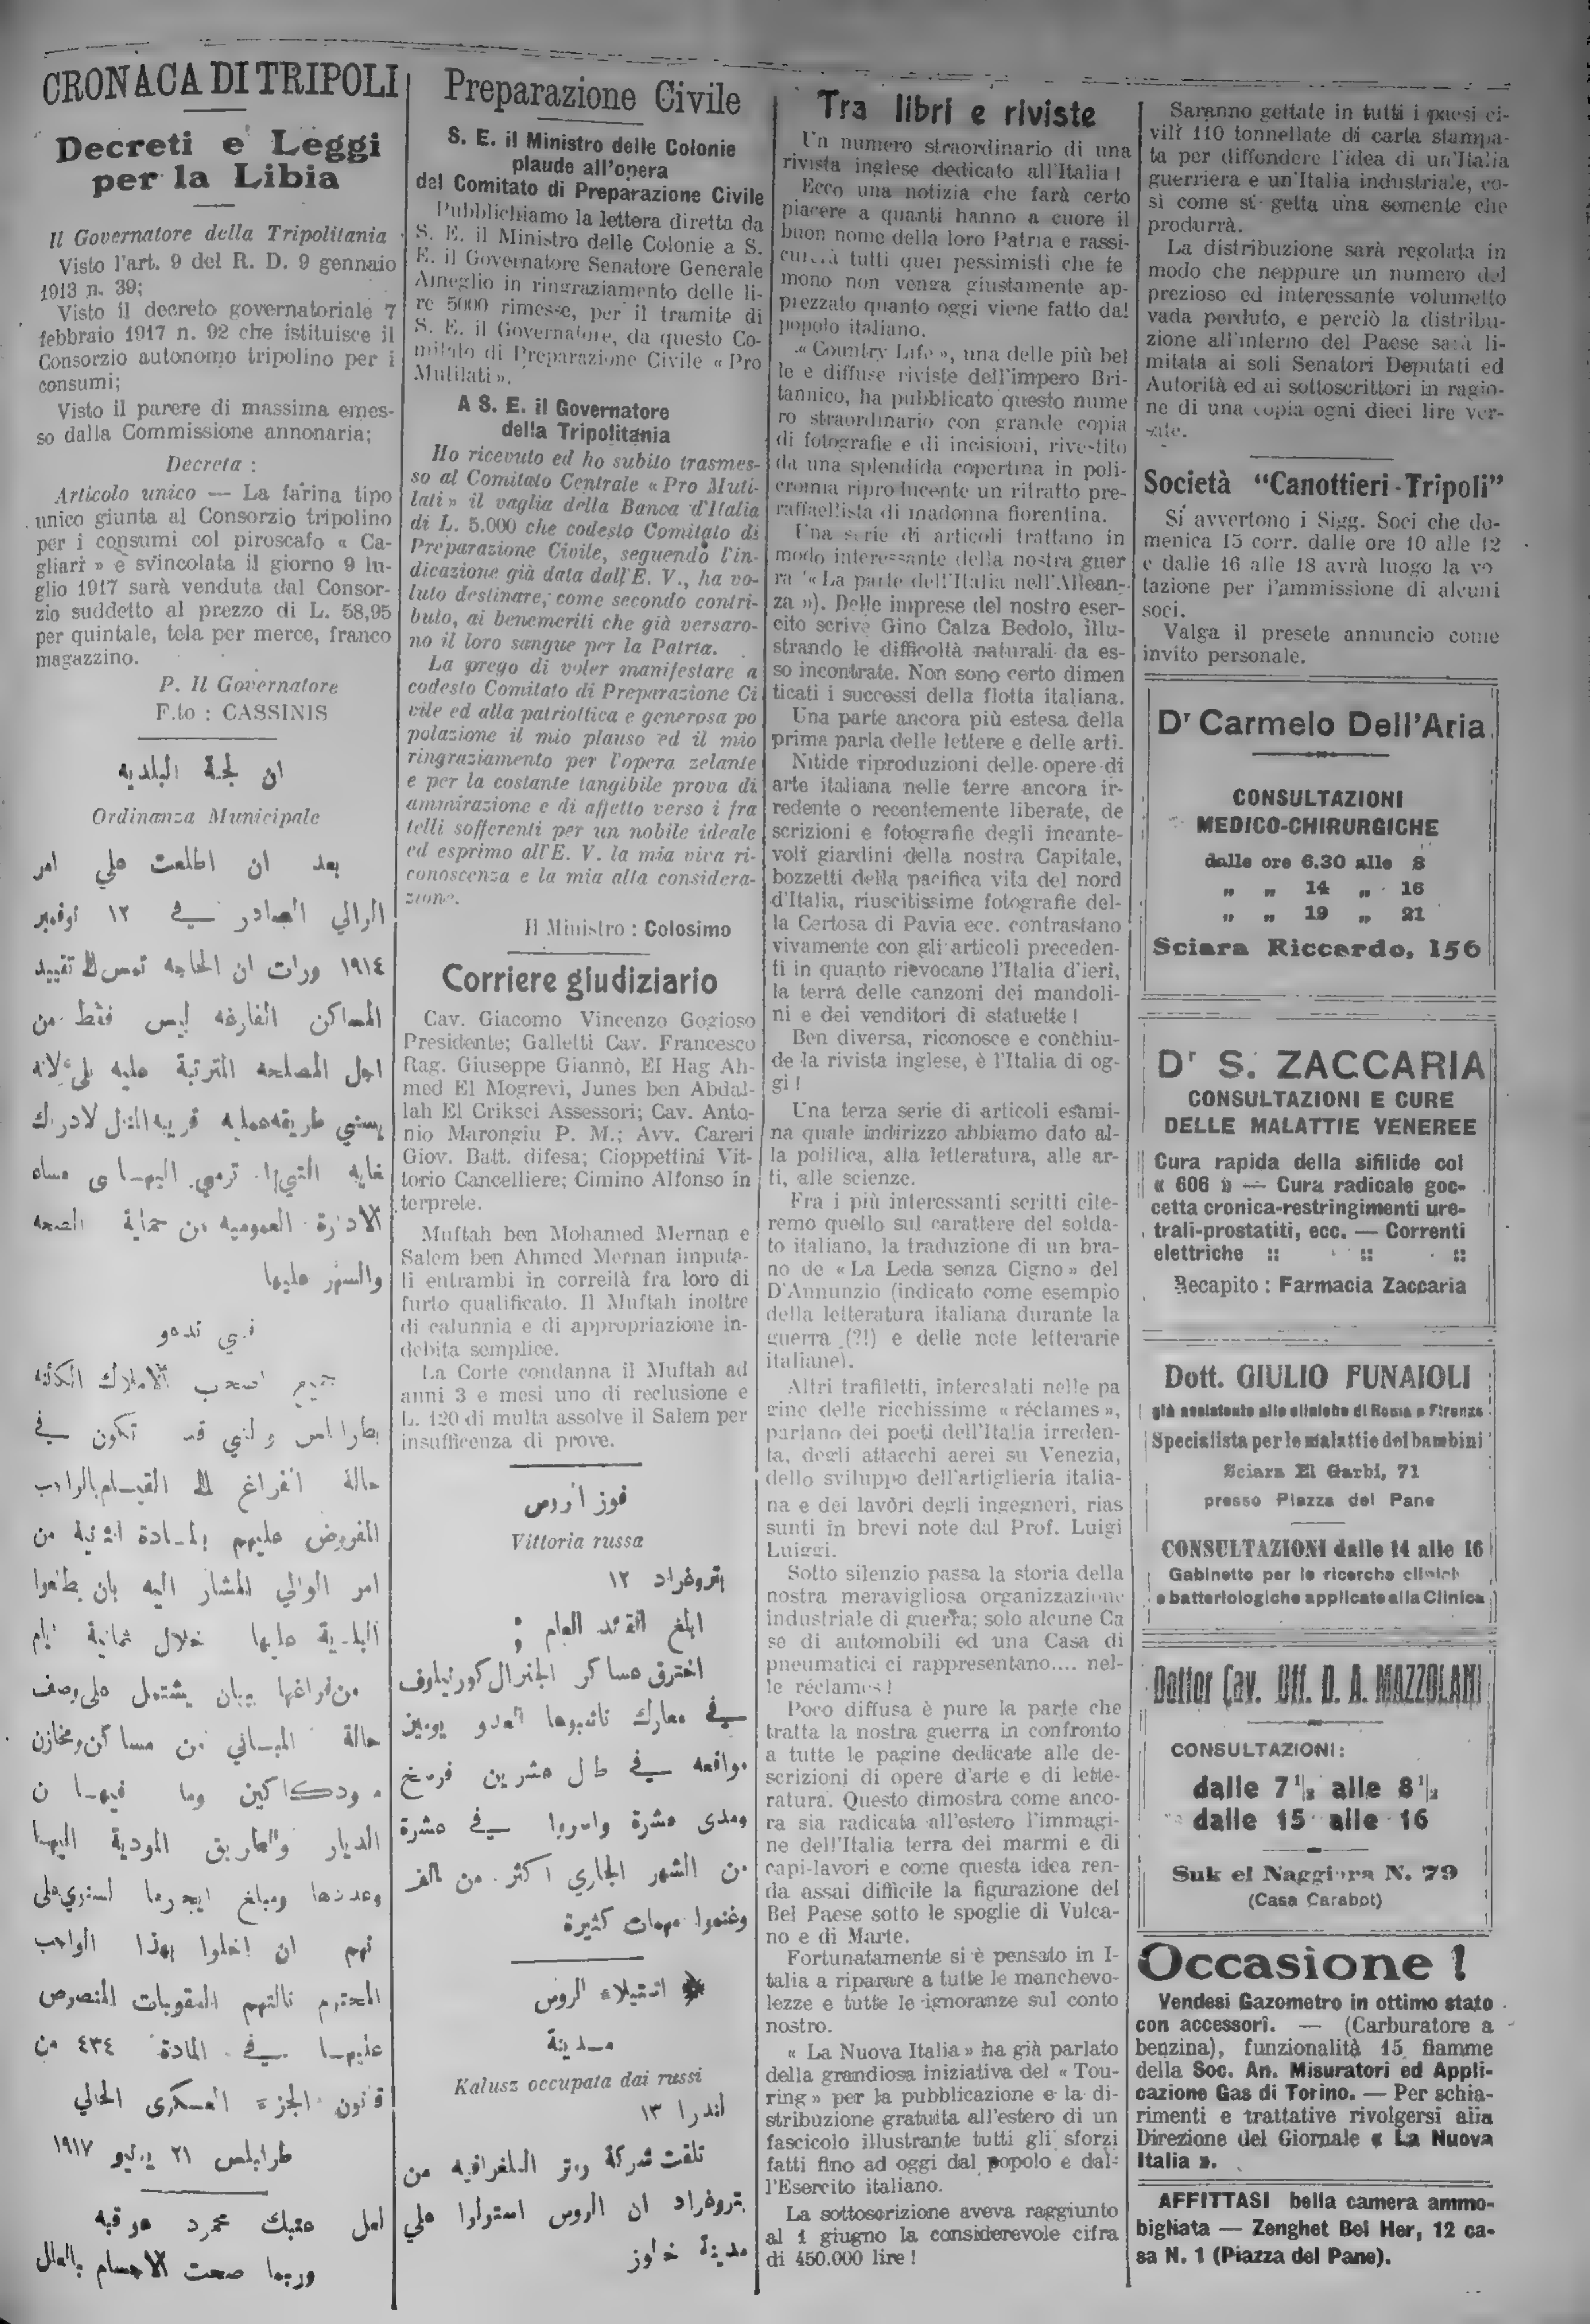 CRONACA DI TRIPOLI
Decreti e Leggi
per la Libia
Il Governatore della Tripolitania
Visto l'art. 9 del R. D. 9 gennaio
1913 n. 39;
Visto il decreto governatoriale 7
febbraio 1917 n. 92 che istituisce il
Consorzio autonomo tripolino per i
consumi;
Visto il parere di massima emes-
so dalla Commissione annonaria;
Decreta :
Articolo unico — La farina tipo
unico giunta al Consorzio tripolino
per i consumi col piroscafo « Ca-
gliari » e svincolata il giorno 9 lu-
glio 1917 sarà venduta dal Consor-
zio suddetto al prezzo di L. 58,95
per quintale, tela per merce, franco
magazzino.
P. Il Governatore
F.to : CASSINIS
ان لجة البلديه
Ordinanza Municipale
بعد ان اطلعت على امر
الوالي الصادر في ١٢ نوفمبر
١٩١٤ ورات ان الحاجه تمس الى تقييد
المساكن الفارغه ليس فقط من
اجل المصلحه المترتبة عليه
غايه التي ترمي اليها
الادارة العموميه من حماية الصحه
والسهر عليها
جميع اصحب الاملاك الكائنه
بطرابلس والتي قد تكون في
حالة الفراغ الى القيام بالواجب
المفروض عليهم بالمادة الثانية من
امر الوالي المشار اليه بان يطلعوا
البلدية عليها خلال ثمانية ايام
من فراغها ببيان يشتمل على وصف
حالة المباني من مساكن ومخازن
ودكاكين وما فيها من
الديار والطريق المودية اليها
وعددها ومبلغ ايجرها السنوي على
انهم ان اخلوا بهذا الواجب
المحترم نالتهم العقوبات المنصوص
عليها في المادة ٤٣٤ من
قانون الجزء العسكري الحالي
طرابلس ٢١ يوليو ١٩١٧
لعل عتبك محمود عوقبه
وربما صحت الاجسام بالعلل
Preparazione Civile
S. E. il Ministro delle Colonie
plaude all'opera
del Comitato di Preparazione Civile
Pubblichiamo la lettera diretta da
S. E. il Ministro delle Colonie a S.
E. il Governatore Senatore Generale
Ameglio in ringraziamento delle li-
re 5000 rimesse, per il tramite di
S. E. il Governatore, da questo Co-
mitato di Preparazione Civile « Pro
Mutilati ».
A S. E. il Governatore
della Tripolitania
Ho ricevuto ed ho subito trasmes-
so al Comitato Centrale « Pro Muti-
lati » il vaglia della Banca d'Italia
di L. 5.000 che codesto Comitato di
Preparazione Civile, seguendo l'in-
dicazione già data dall'E. V., ha vo-
luto destinare, come secondo contri-
buto, ai benemeriti che già versaro-
no il loro sangue per la Patria.
La prego di voler manifestare a
codesto Comitato di Preparazione Ci
vile ed alla patriottica e generosa po
polazione il mio plauso ed il mio
ringraziamento per l'opera zelante
e per la costante tangibile prova di
ammirazione e di affetto verso i fra
telli sofferenti per un nobile ideale
ed esprimo all'E. V. la mia viva ri-
conoscenza e la mia alta considera-
zione.
Il Ministro : Colosimo
Corriere giudiziario
Cav. Giacomo Vincenzo Gogioso
Presidente; Galletti Cav. Francesco
Rag. Giuseppe Giannò, El Hag Ah-
med El Mogrevi, Junes ben Abdal-
lah El Criksci Assessori; Cav. Anto-
nio Marongiu P. M.; Avv. Careri
Giov. Batt. difesa; Cioppettini Vit-
torio Cancelliere; Cimino Alfonso in
terprete.
Muftah ben Mohamed Mernan e
Salem ben Ahmed Mernan imputa-
ti entrambi in correità fra loro di
furto qualificato. Il Muftah inoltre
di calunnia e di appropriazione in-
debita semplice.
La Corte condanna il Muftah ad
anni 3 e mesi uno di reclusione e
L. 120 di multa assolve il Salem per
insufficenza di prove.
فوز اروس
Vittoria russa
بتروغراد ١٢
ابلغ القائد العام ;
اخترق عساكر الجنرال كورنيلوف
في معارك ناشبوها العدو يومين
مواقعه في طال عشرين فرسخ
ومدى عشرة واسروا في عشرة
من الشهر الجاري اكثر من الف
وغنموا مهمات كثيرة
استيلاء الروس
مدينة
Kalusz occupata dai russi
لندرا ١٣
تلقت شركة روتر التلغرافيه من
بتروغراد ان الروس استولوا على
مدينة خالوز
Tra libri e riviste
Un numero straordinario di una
rivista inglese dedicato all'Italia !
Ecco una notizia che farà certo
piacere a quanti hanno a cuore il
buon nome della loro Patria e rassi-
curerà tutti quei pessimisti che te
mono non venga giustamente ap-
prezzato quanto oggi viene fatto dal
popolo italiano.
« Country Life », una delle più bel
le e diffuse riviste dell'impero Bri-
tannico, ha pubblicato questo nume
ro straordinario con grande copia
di fotografie e di incisioni, rivestito
da una splendida copertina in poli-
cromia riproducente un ritratto pre-
raffaellista di madonna fiorentina.
Una serie di articoli trattano in
modo interessante della nostra guer
ra (« La parte dell'Italia nell'Allean-
za »). Delle imprese del nostro eser-
cito scrive Gino Calza Bedolo, illu-
strando le difficoltà naturali da es-
so incontrate. Non sono certo dimen
ticati i successi della flotta italiana.
Una parte ancora più estesa della
prima parla delle lettere e delle arti.
Nitide riproduzioni delle opere di
arte italiana nelle terre ancora ir-
redente o recentemente liberate, de
scrizioni e fotografie degli incante-
voli giardini della nostra Capitale,
bozzetti della pacifica vita del nord
d'Italia, riuscitissime fotografie del-
la Certosa di Pavia ecc. contrastano
vivamente con gli articoli preceden-
ti in quanto rievocano l'Italia d'ieri,
la terra delle canzoni dei mandoli-
ni e dei venditori di statuette !
Ben diversa, riconosce e conchiu-
de la rivista inglese, è l'Italia di og-
gi !
Una terza serie di articoli esami-
na quale indirizzo abbiamo dato al-
la politica, alla letteratura, alle ar-
ti, alle scienze.
Fra i più interessanti scritti cite-
remo quello sul carattere del solda-
to italiano, la traduzione di un bra-
no de « La Leda senza Cigno » del
D'Annunzio (indicato come esempio
della letteratura italiana durante la
guerra (?!) e delle note letterarie
italiane).
Altri trafiletti, intercalati nelle pa
gine delle ricchissime « réclames »,
parlano dei poeti dell'Italia irreden-
ta, degli attacchi aerei su Venezia,
dello sviluppo dell'artiglieria italia-
na e dei lavori degli ingegneri, rias
sunti in brevi note dal Prof. Luigi
Luiggi.
Sotto silenzio passa la storia della
nostra meravigliosa organizzazione
industriale di guerra; solo alcune Ca
se di automobili ed una Casa di
pneumatici ci rappresentano.... nel-
le réclames !
Poco diffusa è pure la parte che
tratta la nostra guerra in confronto
a tutte le pagine dedicate alle de-
scrizioni di opere d'arte e di lette-
ratura. Questo dimostra come anco-
ra sia radicata all'estero l'immagi-
ne dell'Italia terra dei marmi e di
capi-lavori e come questa idea ren-
da assai difficile la figurazione del
Bel Paese sotto le spoglie di Vulca-
no e di Marte.
Fortunatamente si è pensato in I-
talia a riparare a tutte le manchevo-
lezze e tutte le ignoranze sul conto
nostro.
« La Nuova Italia » ha già parlato
della grandiosa iniziativa del « Tou-
ring » per la pubblicazione e la di-
stribuzione gratuita all'estero di un
fascicolo illustrante tutti gli sforzi
fatti fino ad oggi dal popolo e dal-
l'Esercito italiano.
La sottoscrizione aveva raggiunto
al 1 giugno la considerevole cifra
di 450.000 lire !
Saranno gettate in tutti i paesi ci-
vili 110 tonnellate di carta stampa-
ta per diffondere l'idea di un'Italia
guerriera e un'Italia industriale, co-
si come si getta una semente che
produrrà.
La distribuzione sarà regolata in
modo che neppure un numero del
prezioso ed interessante volumetto
vada perduto, e perciò la distribu-
zione all'interno del Paese sarà li-
mitata ai soli Senatori Deputati ed
Autorità ed ai sottoscrittori in ragio-
ne di una copia ogni dieci lire ver-
sate.
Società "Canottieri-Tripoli"
Si avvertono i Sigg. Soci che do-
menica 15 corr. dalle ore 10 alle 12
e dalle 16 alle 18 avrà luogo la vo
tazione per l'ammissione di alcuni
soci.
Valga il presete annuncio come
invito personale.
Dr Carmelo Dell'Aria
CONSULTAZIONI
MEDICO-CHIRURGICHE
dalle ore 6.30 alle 8
„ „ 14 „ 16
„ „ 19 „ 21
Sciara Riccardo, 156
Dr S. ZACCARIA
CONSULTAZIONI E CURE
DELLE MALATTIE VENEREE
Cura rapida della sifilide col
« 606 » — Cura radicale goc-
cetta cronica-restringimenti ure-
trali-prostatiti, ecc. — Correnti
elettriche :: :: ::
Recapito : Farmacia Zaccaria
Dott. GIULIO FUNAIOLI
già assistente alle cliniche di Roma e Firenze
Specialista per le malattie dei bambini
Sciara El Garbi, 71
presso Piazza del Pane
CONSULTAZIONI dalle 14 alle 16
Gabinetto per le ricerche cliniche
e batteriologiche applicate alla Clinica
Dottor Cav. Uff. D. A. MAZZOLANI
CONSULTAZIONI:
dalle 7 1/2 alle 8 1/2
dalle 15 alle 16
Suk el Naggiara N. 79
(Casa Carabot)
Occasione !
Vendesi Gazometro in ottimo stato
con accessori. — (Carburatore a
benzina), funzionalità 15 fiamme
della Soc. An. Misuratori ed Appli-
cazione Gas di Torino. — Per schia-
rimenti e trattative rivolgersi alla
Direzione del Giornale « La Nuova
Italia ».
AFFITTASI bella camera ammo-
bigliata — Zenghet Bel Her, 12 ca-
sa N. 1 (Piazza del Pane).